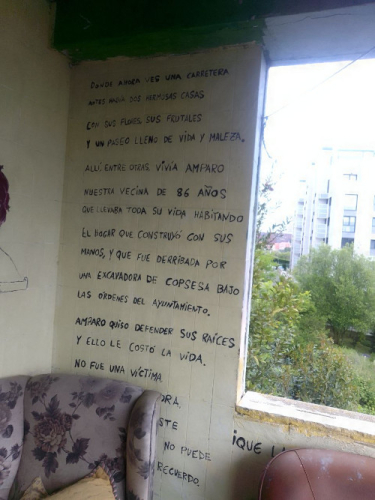 DONDE AHORA VES UNA CARRETERA
ANTES HABIA DOS HERMOSAS CASAS
CON SUS FLORES, SUS FRUTALES
Y UN PASEO LLENO DE VIDA Y MALEZA.
ALLÍ ENTRE OTRAS VIVÍA AMPARO
NUESTRA VECINA DE 86 AÑOS
QUE LLEVABA TODA SU VIDA HABITANDO
EL HOGAR QUE CONSTRUYÓ CON SUS
MANOS, Y QUE FUE DERRIBADA POR
UNA EXCAVADORA DE COPSESA BAJO
LAS ORDENES DEL AYUNTAMIENTO.
AMPARO QUISO DEFENDER SUS RAÍCES
Y ELLO LE COSTÓ LA VIDA.
NO FUE UNA VÍCTIMA
NO PUEDE
RECUERDO.
¡QUE